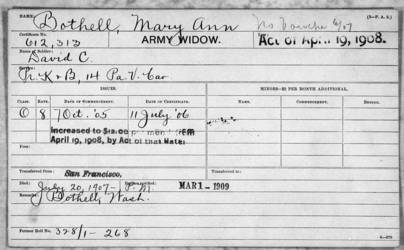 NAME: Bothell, Mary Ann No Voucher 6/07 (3—P. A. S.)
Certificate No. 612,313 ARMY WIDOW. Act of April 19, 1908.
Name of Soldier: David C.
Service: Tr. K & B, 14 Pa. V. Cav
ISSUES. MINORS—$2 PER MONTH ADDITIONAL.
CLASS. RATE. DATE OF COMMENCEMENT. DATE OF CERTIFICATE. NAME. COMMENCEMENT. EXPIRATION.
O 8 7 Oct. '05 11 July '06
Increased to $12.00 per month from
April 19, 1908, by Act of that date.
From:
Transferred from: San Francisco.
Died: July 20, 1907
MAR 1 - 1909
Remarks: Bothell, Wash.
Former Roll No. 328/1 - 268